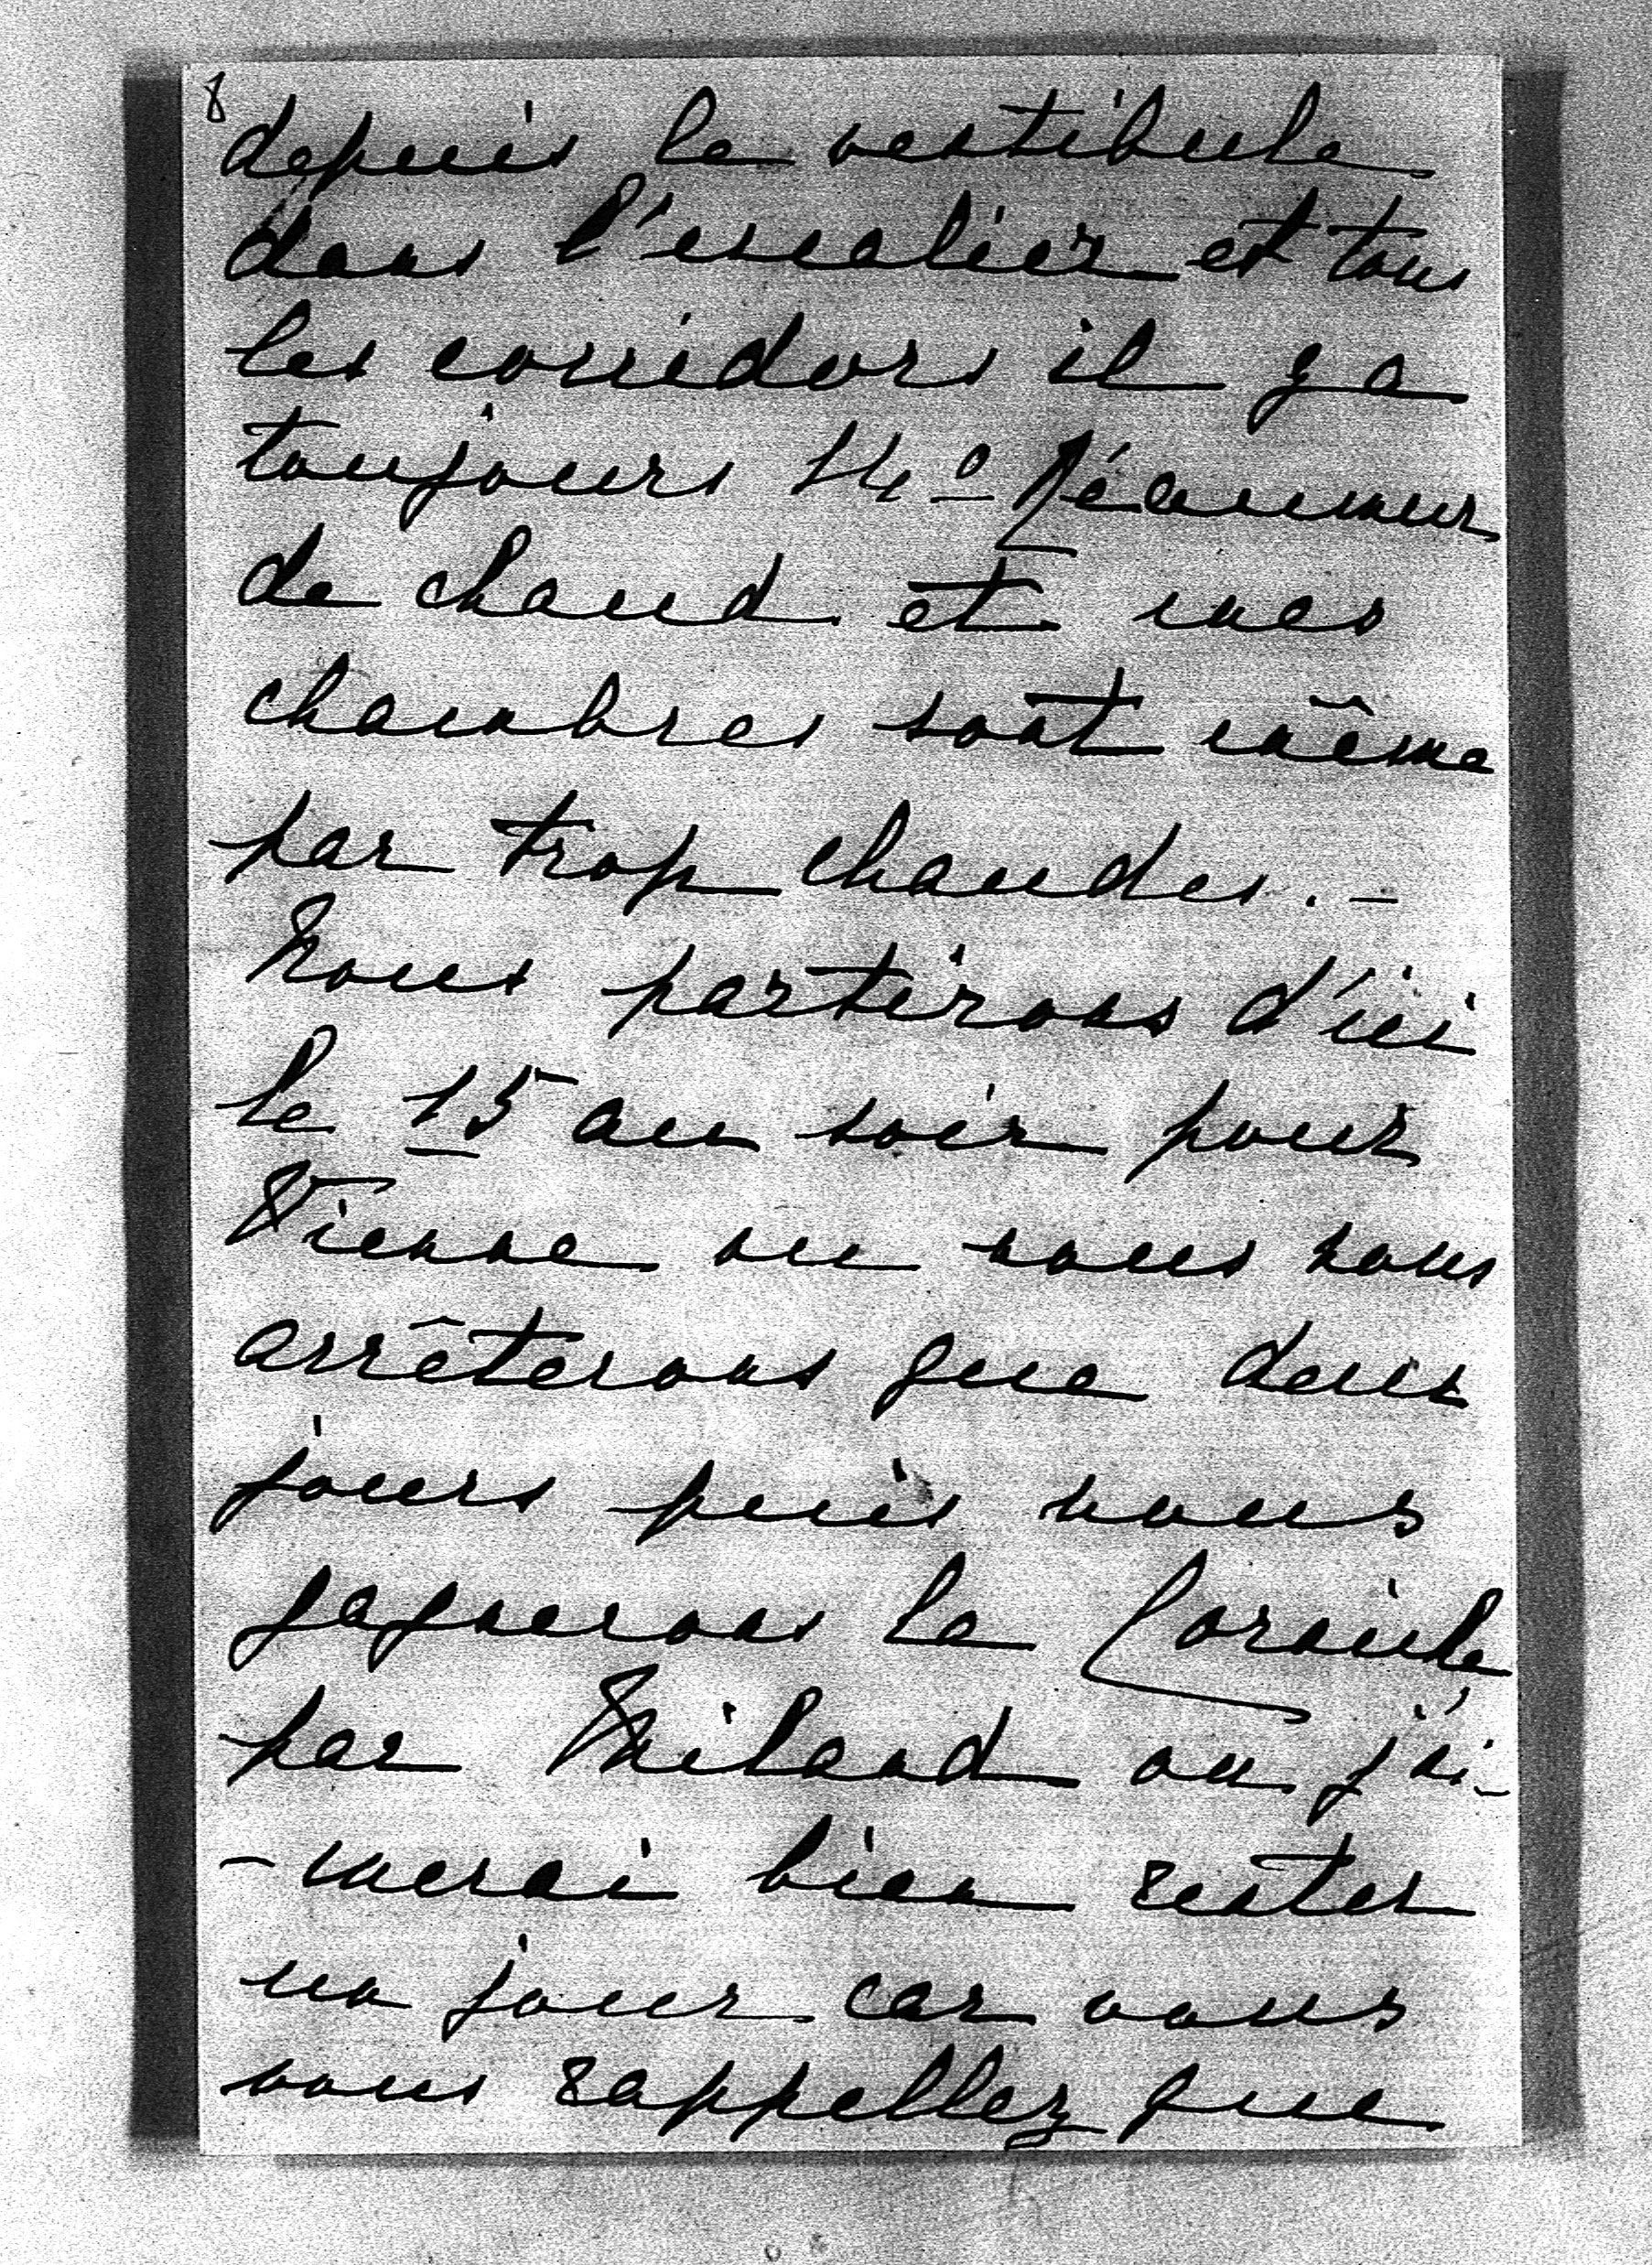 8
depuis le vestibule
dans l'escalier et tous
les corridors il y a
toujours 14° Réaumur
de chaud et mes
chambres sont même
par trop chaudes. –
Nous partirons d'ici
le 15 au soir pour
Vienne ou nous nous
arrêterons que deux
jours puis nous
gagnerons la Corniche
par Miland ou j'ai-
-merai bien rester
un jour car vous
vous rappellez que